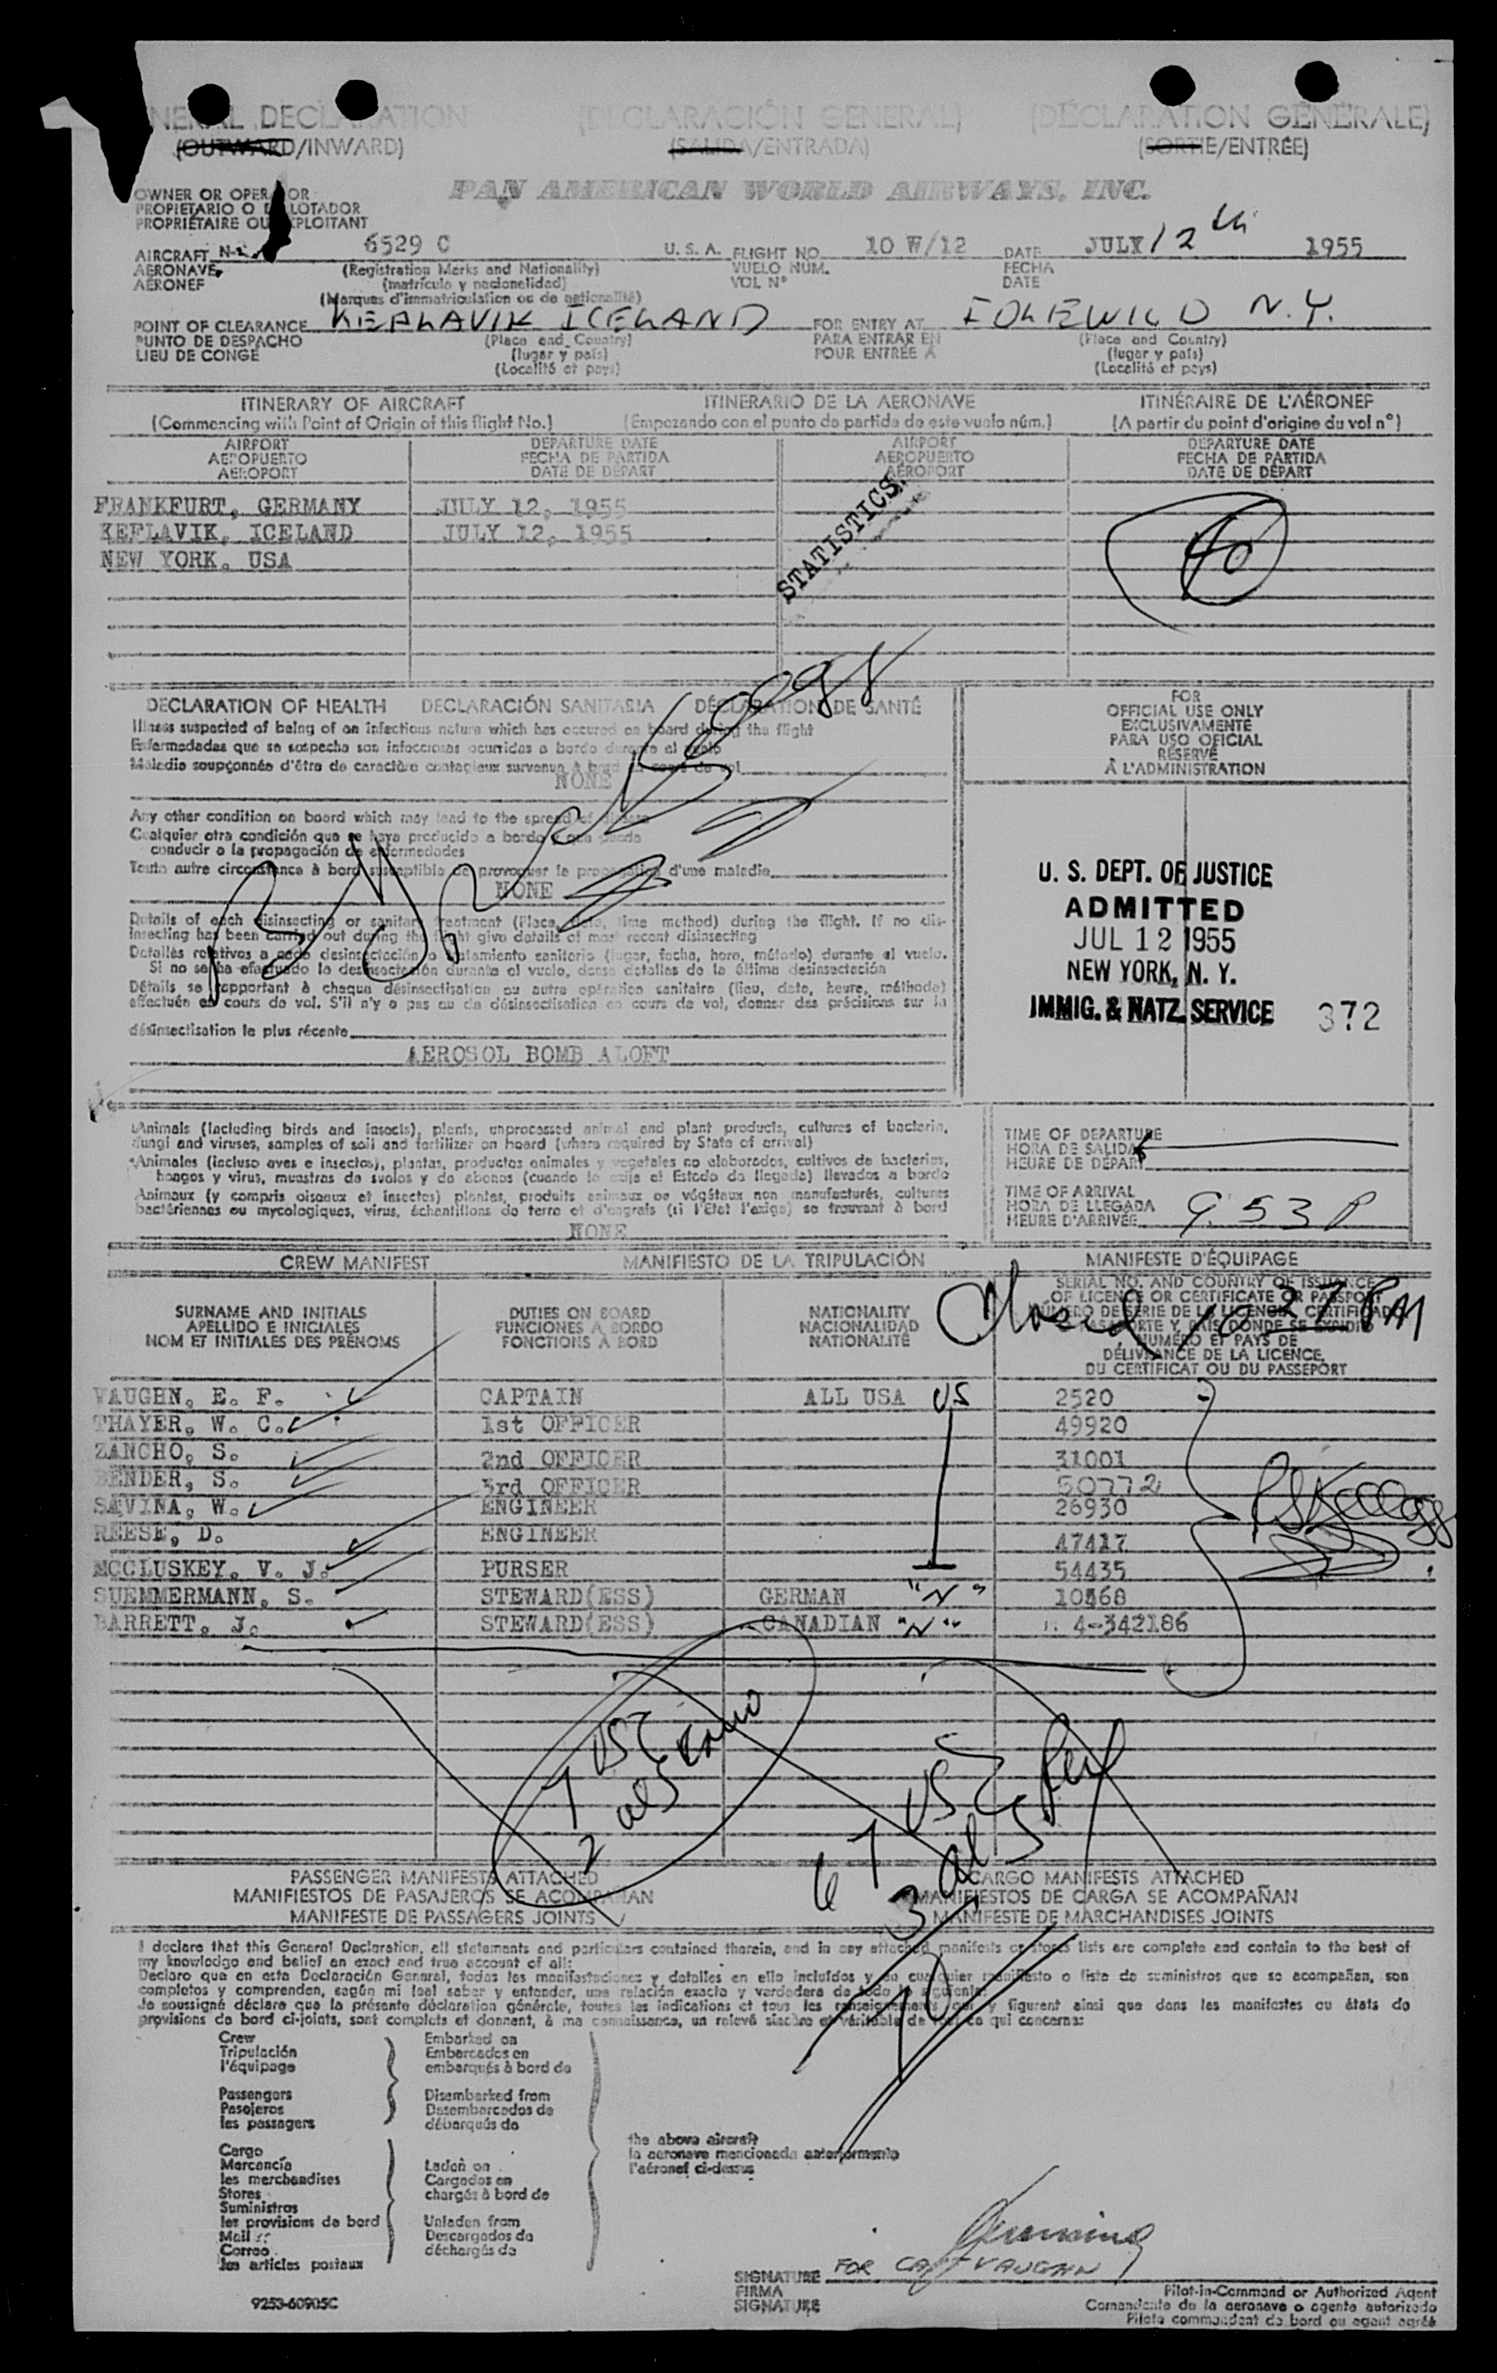 NERAL DECLARATION (DECLARACIÓN GENERAL) (DÉCLARATION GÉNÉRALE)
(OUTWARD/INWARD) (SALIDA/ENTRADA) (SORTIE/ENTRÉE)
PAN AMERICAN WORLD AIRWAYS, INC.
OWNER OR OPERATOR
PROPIETARIO O EXPLOTADOR
PROPRIÉTAIRE OU EXPLOITANT
AIRCRAFT N- 6529 C U.S.A. FLIGHT NO. 10 W/12 DATE JULY 12th 1955
AERONAVE (Registration Marks and Nationality) VUELO NÚM. FECHA
AÉRONEF (matrícula y nacionalidad) VOL Nº DATE
(Marques d'immatriculation ou de nationalité)
POINT OF CLEARANCE KEPLAVIK ICELAND FOR ENTRY AT IDLEWILD N.Y.
PUNTO DE DESPACHO (Place and Country) PARA ENTRAR EN (Place and Country)
LIEU DE CONGÉ (lugar y país) POUR ENTRÉE À (lugar y país)
(Localité et pays) (Localité et pays)
ITINERARY OF AIRCRAFT ITINERARIO DE LA AERONAVE ITINÉRAIRE DE L'AÉRONEF
(Commencing with Point of Origin of this flight No.) (Empezando con el punto de partida de este vuelo núm.) (A partir du point d'origine du vol nº)
AIRPORT DEPARTURE DATE AIRPORT DEPARTURE DATE
AEROPUERTO FECHA DE PARTIDA AEROPUERTO FECHA DE PARTIDA
AÉROPORT DATE DE DÉPART AÉROPORT DATE DE DÉPART
FRANKFURT, GERMANY JULY 12, 1955
KEFLAVIK, ICELAND JULY 12, 1955
NEW YORK, USA
STATISTICS
40
DECLARATION OF HEALTH DECLARACIÓN SANITARIA DÉCLARATION DE SANTÉ
Illness suspected of being of an infectious nature which has occured on board during the flight
Enfermedades que se sospecha son infecciosas ocurridas a bordo durante el vuelo
Maladie soupçonnée d'être de caractère contagieux survenue à bord au cours du vol
NONE
Any other condition on board which may lead to the spread of disease
Cualquier otra condición que se haya producido a bordo y que pueda
conducir a la propagación de enfermedades
Toute autre circonstance à bord susceptible de provoquer la propagation d'une maladie
NONE
Details of each disinsecting or sanitary treatment (Place, date, time method) during the flight. If no dis-
insecting has been carried out during the flight give details of most recent disinsecting
Detalles relativos a cada desinsectación o tratamiento sanitario (lugar, fecha, hora, método) durante el vuelo.
Si no se ha efectuado la desinsectación durante el vuelo, dense detalles de la última desinsectación
Détails se rapportant à chaque désinsectisation ou autre opération sanitaire (lieu, date, heure, méthode)
effectués en cours de vol. S'il n'y a pas eu de désinsectisation en cours de vol, donner des précisions sur la
désinsectisation la plus récente
AEROSOL BOMB ALOFT
FOR
OFFICIAL USE ONLY
EXCLUSIVAMENTE
PARA USO OFICIAL
RÉSERVÉ
À L'ADMINISTRATION
U. S. DEPT. OF JUSTICE
ADMITTED
JUL 12 1955
NEW YORK, N. Y.
IMMIG. & NATZ. SERVICE 372
Animals (including birds and insects), plants, unprocessed animal and plant products, cultures of bacteria,
fungi and viruses, samples of soil and fertilizer on board (where required by State of arrival)
Animales (incluso aves e insectos), plantas, productos animales y vegetales no elaborados, cultivos de bacterias,
hongos y virus, muestras de suelos y de abonos (cuando lo exija el Estado de llegada) llevados a bordo
Animaux (y compris oiseaux et insectes) plantes, produits animaux ou végétaux non manufacturés, cultures
bactériennes ou mycologiques, virus, échantillons de terre et d'engrais (si l'État l'exige) se trouvant à bord
NONE
TIME OF DEPARTURE
HORA DE SALIDA
HEURE DE DÉPART
TIME OF ARRIVAL
HORA DE LLEGADA
HEURE D'ARRIVÉE 9.53 P
CREW MANIFEST MANIFIESTO DE LA TRIPULACIÓN MANIFESTE D'ÉQUIPAGE
SURNAME AND INITIALS DUTIES ON BOARD NATIONALITY SERIAL NO. AND COUNTRY OF ISSUANCE
APELLIDO E INICIALES FUNCIONES A BORDO NACIONALIDAD OF LICENCE OR CERTIFICATE OR PASSPORT
NOM ET INITIALES DES PRÉNOMS FONCTIONS À BORD NATIONALITÉ NÚMERO DE SERIE DE LA LICENCIA, CERTIFICADO
PASAPORTE Y PAÍS DONDE SE EXPIDIÓ
NUMÉRO ET PAYS DE
DÉLIVRANCE DE LA LICENCE,
DU CERTIFICAT OU DU PASSEPORT
1037 PM
VAUGHN, E. F. CAPTAIN ALL USA US 2520
THAYER, W. C. 1st OFFICER 49920
ZANCHO, S. 2nd OFFICER 31001
BENDER, S. 3rd OFFICER 50772
SAVINA, W. ENGINEER 26930
REESE, D. ENGINEER 47417
MCCLUSKEY, V. J. PURSER 54435
SUEMMERMANN, S. STEWARD(ESS) GERMAN "N" 10568
BARRETT, J. STEWARD(ESS) CANADIAN "N" 4-342186
7 USC
2 als
67 USC
3 als
70
PASSENGER MANIFESTS ATTACHED CARGO MANIFESTS ATTACHED
MANIFIESTOS DE PASAJEROS SE ACOMPAÑAN MANIFIESTOS DE CARGA SE ACOMPAÑAN
MANIFESTE DE PASSAGERS JOINTS MANIFESTE DE MARCHANDISES JOINTS
I declare that this General Declaration, all statements and particulars contained therein, and in any attached manifests or stores lists are complete and contain to the best of
my knowledge and belief an exact and true account of all:
Declaro que en esta Declaración General, todas las manifestaciones y detalles en ella incluídos y en cualquier manifiesto o lista de suministros que se acompañan, son
completos y comprenden, según mi leal saber y entender, una relación exacta y verdadera de todo lo siguiente:
Je soussigné déclare que la présente déclaration générale, toutes les indications et tous les renseignements qui y figurent ainsi que dans les manifestes ou états de
provisions de bord ci-joints, sont complets et donnent, à ma connaissance, un relevé sincère et véritable de tout ce qui concerne:
Crew Embarked on
Tripulación Embarcados en
l'équipage embarqués à bord de
Passengers Disembarked from
Pasajeros Desembarcados de
les passagers débarqués de
the above aircraft
la aeronave mencionada anteriormente
l'aéronef ci-dessus
Cargo
Mercancía Laden on
les merchandises Cargados en
Stores chargés à bord de
Suministros
les provisions de bord Unladen from
Mail Descargados de
Correo déchargés de
les articles postaux
SIGNATURE FOR CAPT VAUGHN
FIRMA
SIGNATURE
Pilot-in-Command or Authorized Agent
Comandante de la aeronave o agente autorizado
Pilote commandant de bord ou agent agréé
9253-60905C